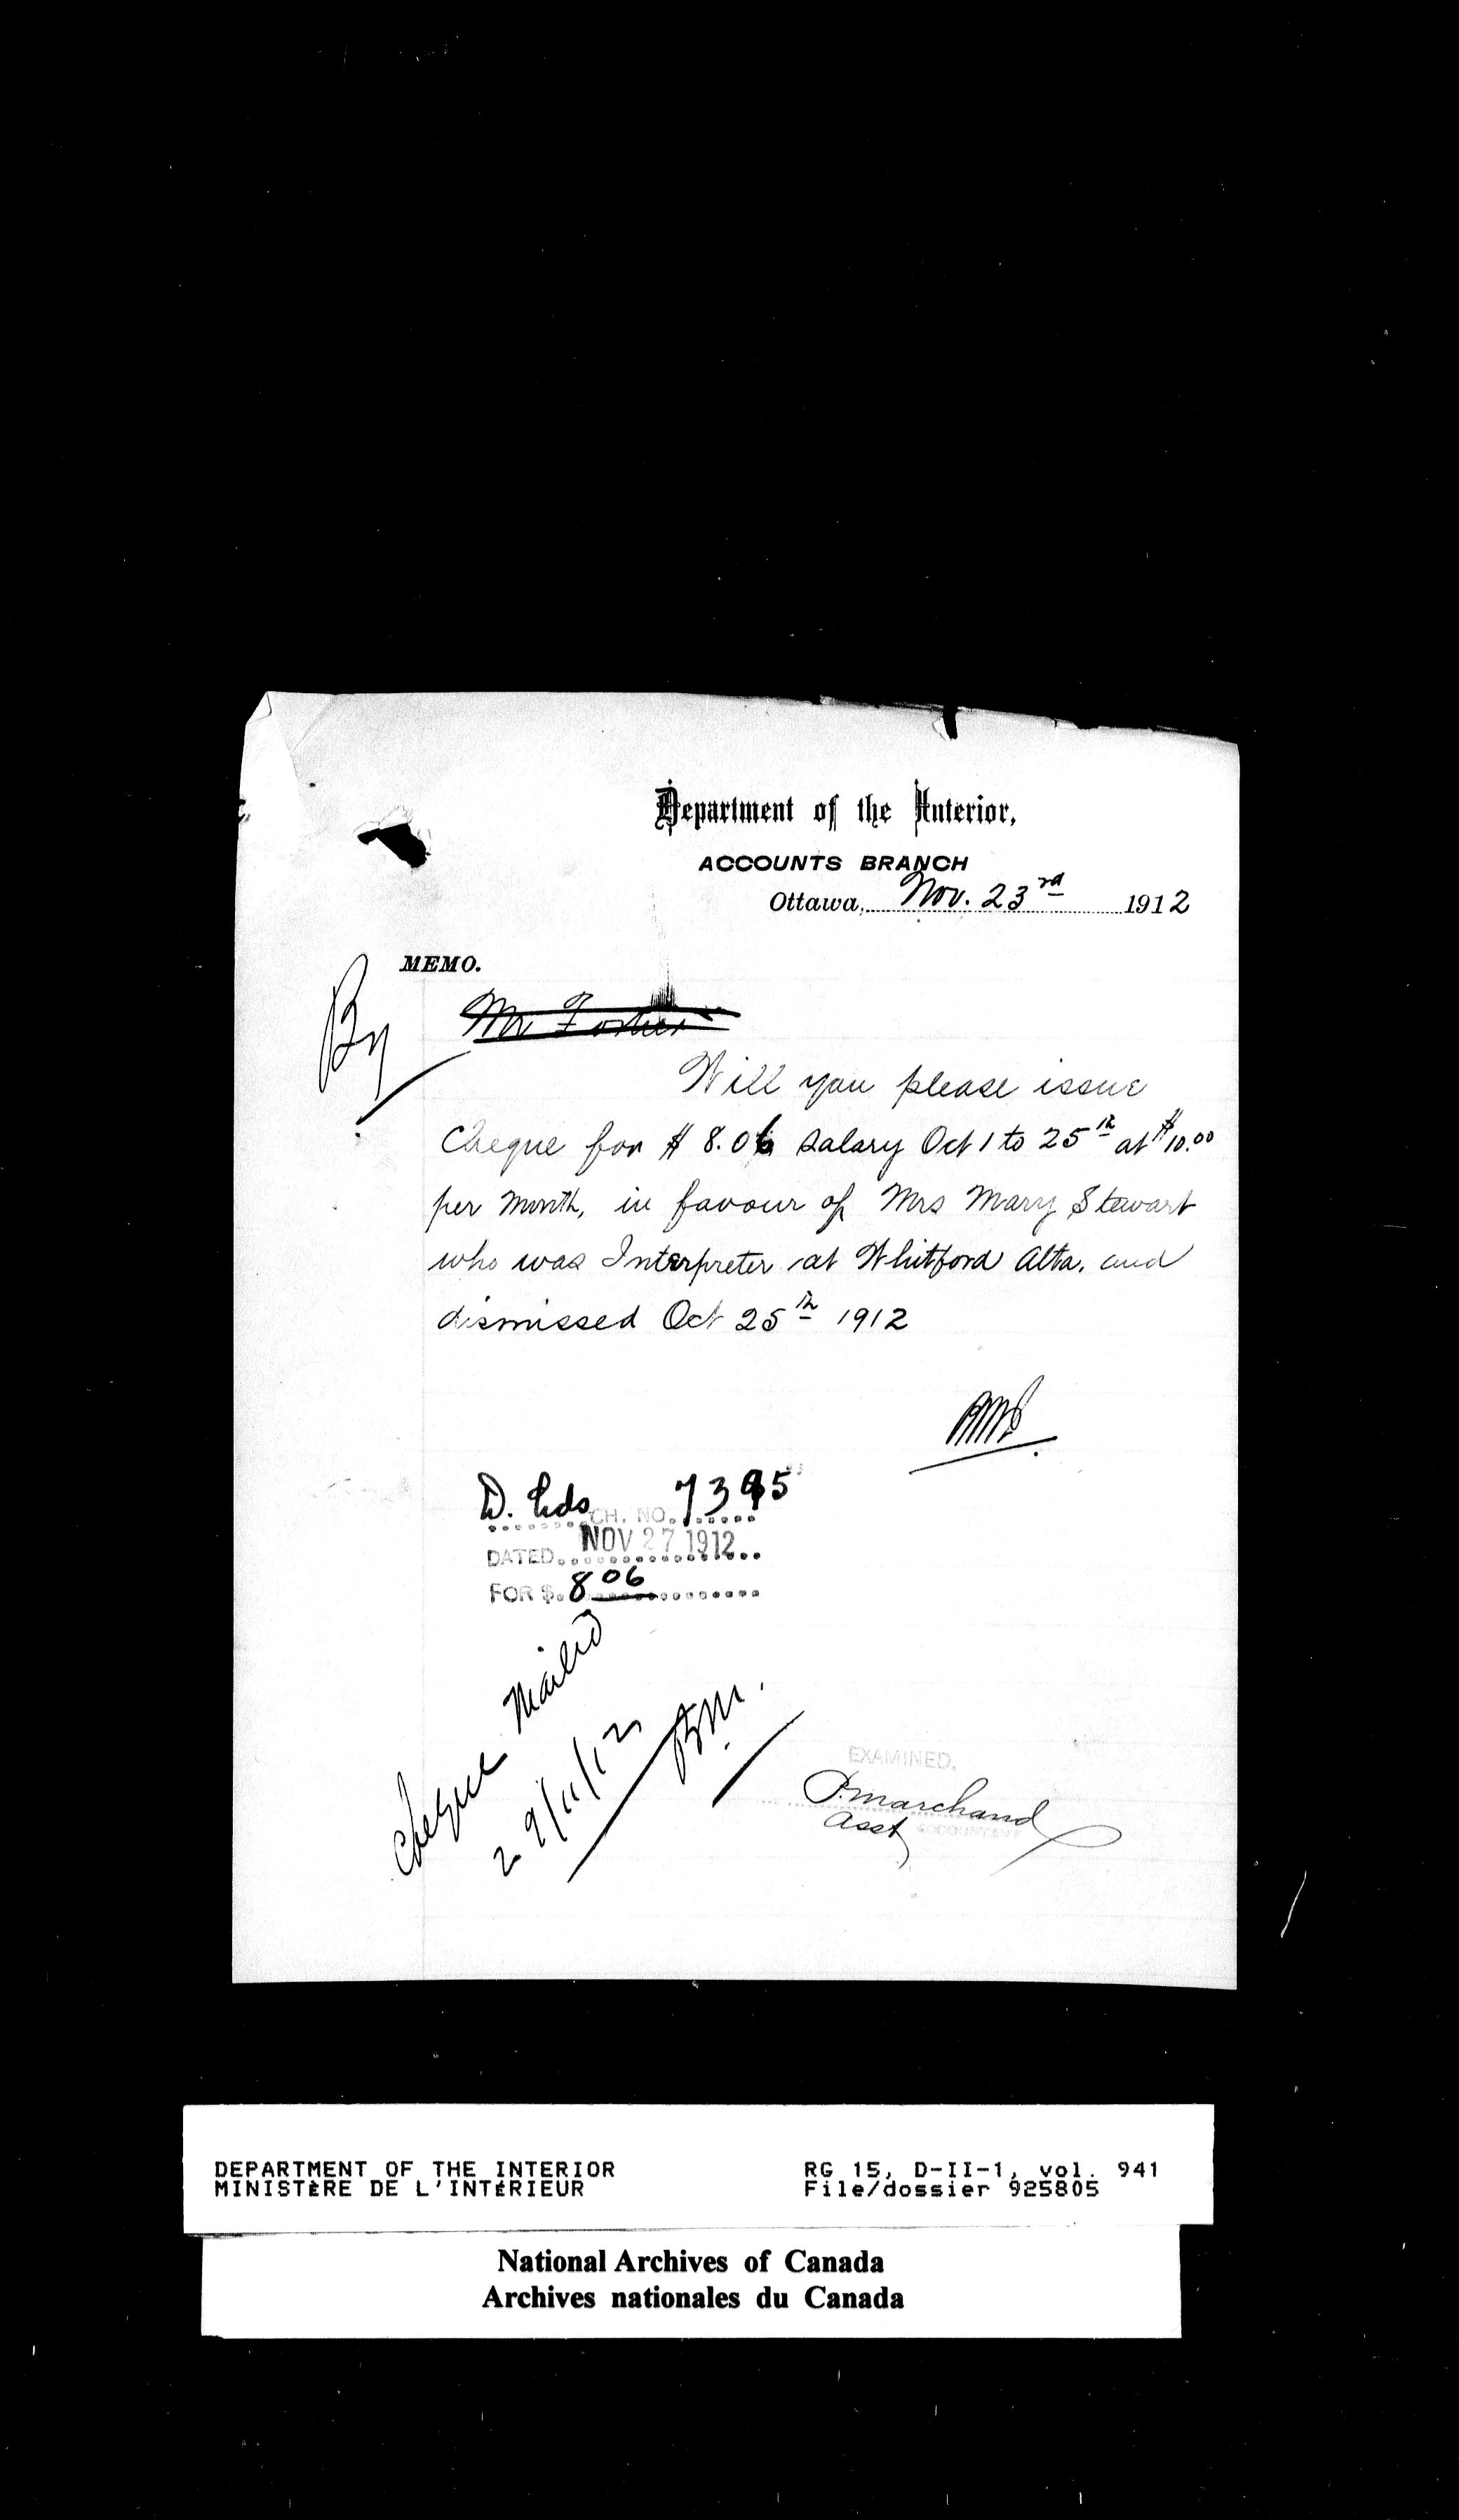 Department of the Interior,
ACCOUNTS BRANCH
Ottawa, Nov. 23rd 1912
MEMO.
By
Mr
Will you please issue
Cheque for $ 8.06 salary Oct 1 to 25th at $10.00
per month, in favour of Mrs Mary Stewart
who was Interpreter at Whitford Alta. and
dismissed Oct 25th 1912
D. Lds CH. NO. 7395
DATED NOV 27 1912
FOR $. 8 06
Cheque Mailed
29/11/12
EXAMINED.
P. Marchand
Asst ACCOUNTANT
DEPARTMENT OF THE INTERIOR
MINISTÈRE DE L'INTÉRIEUR
RG 15, D-II-1, vol. 941
File/dossier 925805
National Archives of Canada
Archives nationales du Canada